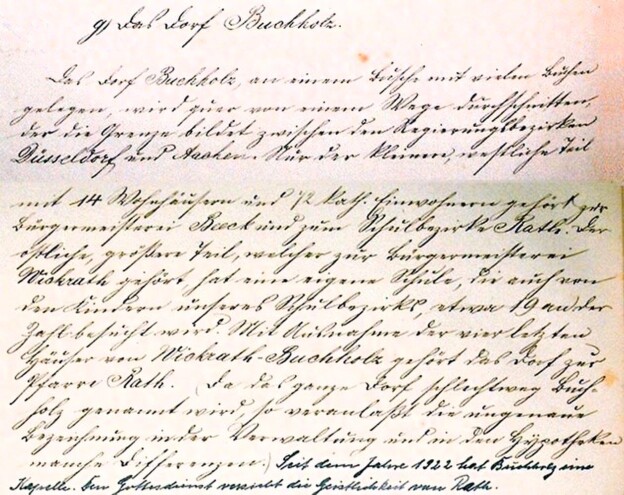 g) Das Dorf Buchholz.
Das Dorf Buchholz, an einem Busche mit vielen Buchen
gelegen, wird quer von einem Wege durchschnitten,
der die Grenze bildet zwischen den Regierungsbezirken
Düsseldorf und Aachen. Nur der kleinere, westliche Teil
mit 14 Wohnhäusern und 72 kath. Einwohnern gehört zur
Bürgermeisterei Beeck und zum Schulbezirke Rath. Der
östliche, größere Teil, welcher zur Bürgermeisterei
Wickrath gehört, hat eine eigene Schule, die auch von
den Kindern unseres Schulbezirks, etwa 19 an der
Zahl besucht wird. Mit Ausnahme der vier letzten
Häuser von Wickrath-Buchholz gehört das Dorf zur
Pfarre Rath. (Da das ganze Dorf schlechtweg Buch-
holz genannt wird, so veranlaßt die ungenaue
Bezeichnung in der Verwaltung und in den Hypotheken
manche Differenzen.) Seit dem Jahre 1922 hat Buchholz eine
Kapelle. Den Gottesdienst versieht die Geistlichkeit von Rath.